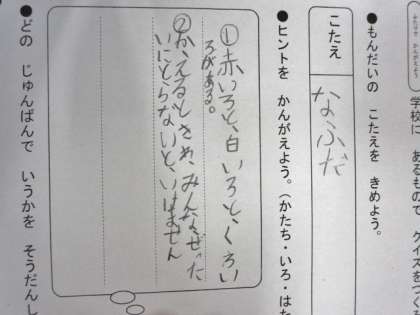 学校に あるもので クイズをつ
●もんだいの こたえを きめよう。
こたえ
なふだ
●ヒントを かんがえよう。(かたち・いろ・はた
①赤いろと、白いろと、くろい
ろがある。
②かえるときわ、みんなぜった
いにとらないと、いけません
●どの じゅんばんで いうかを そうだんし